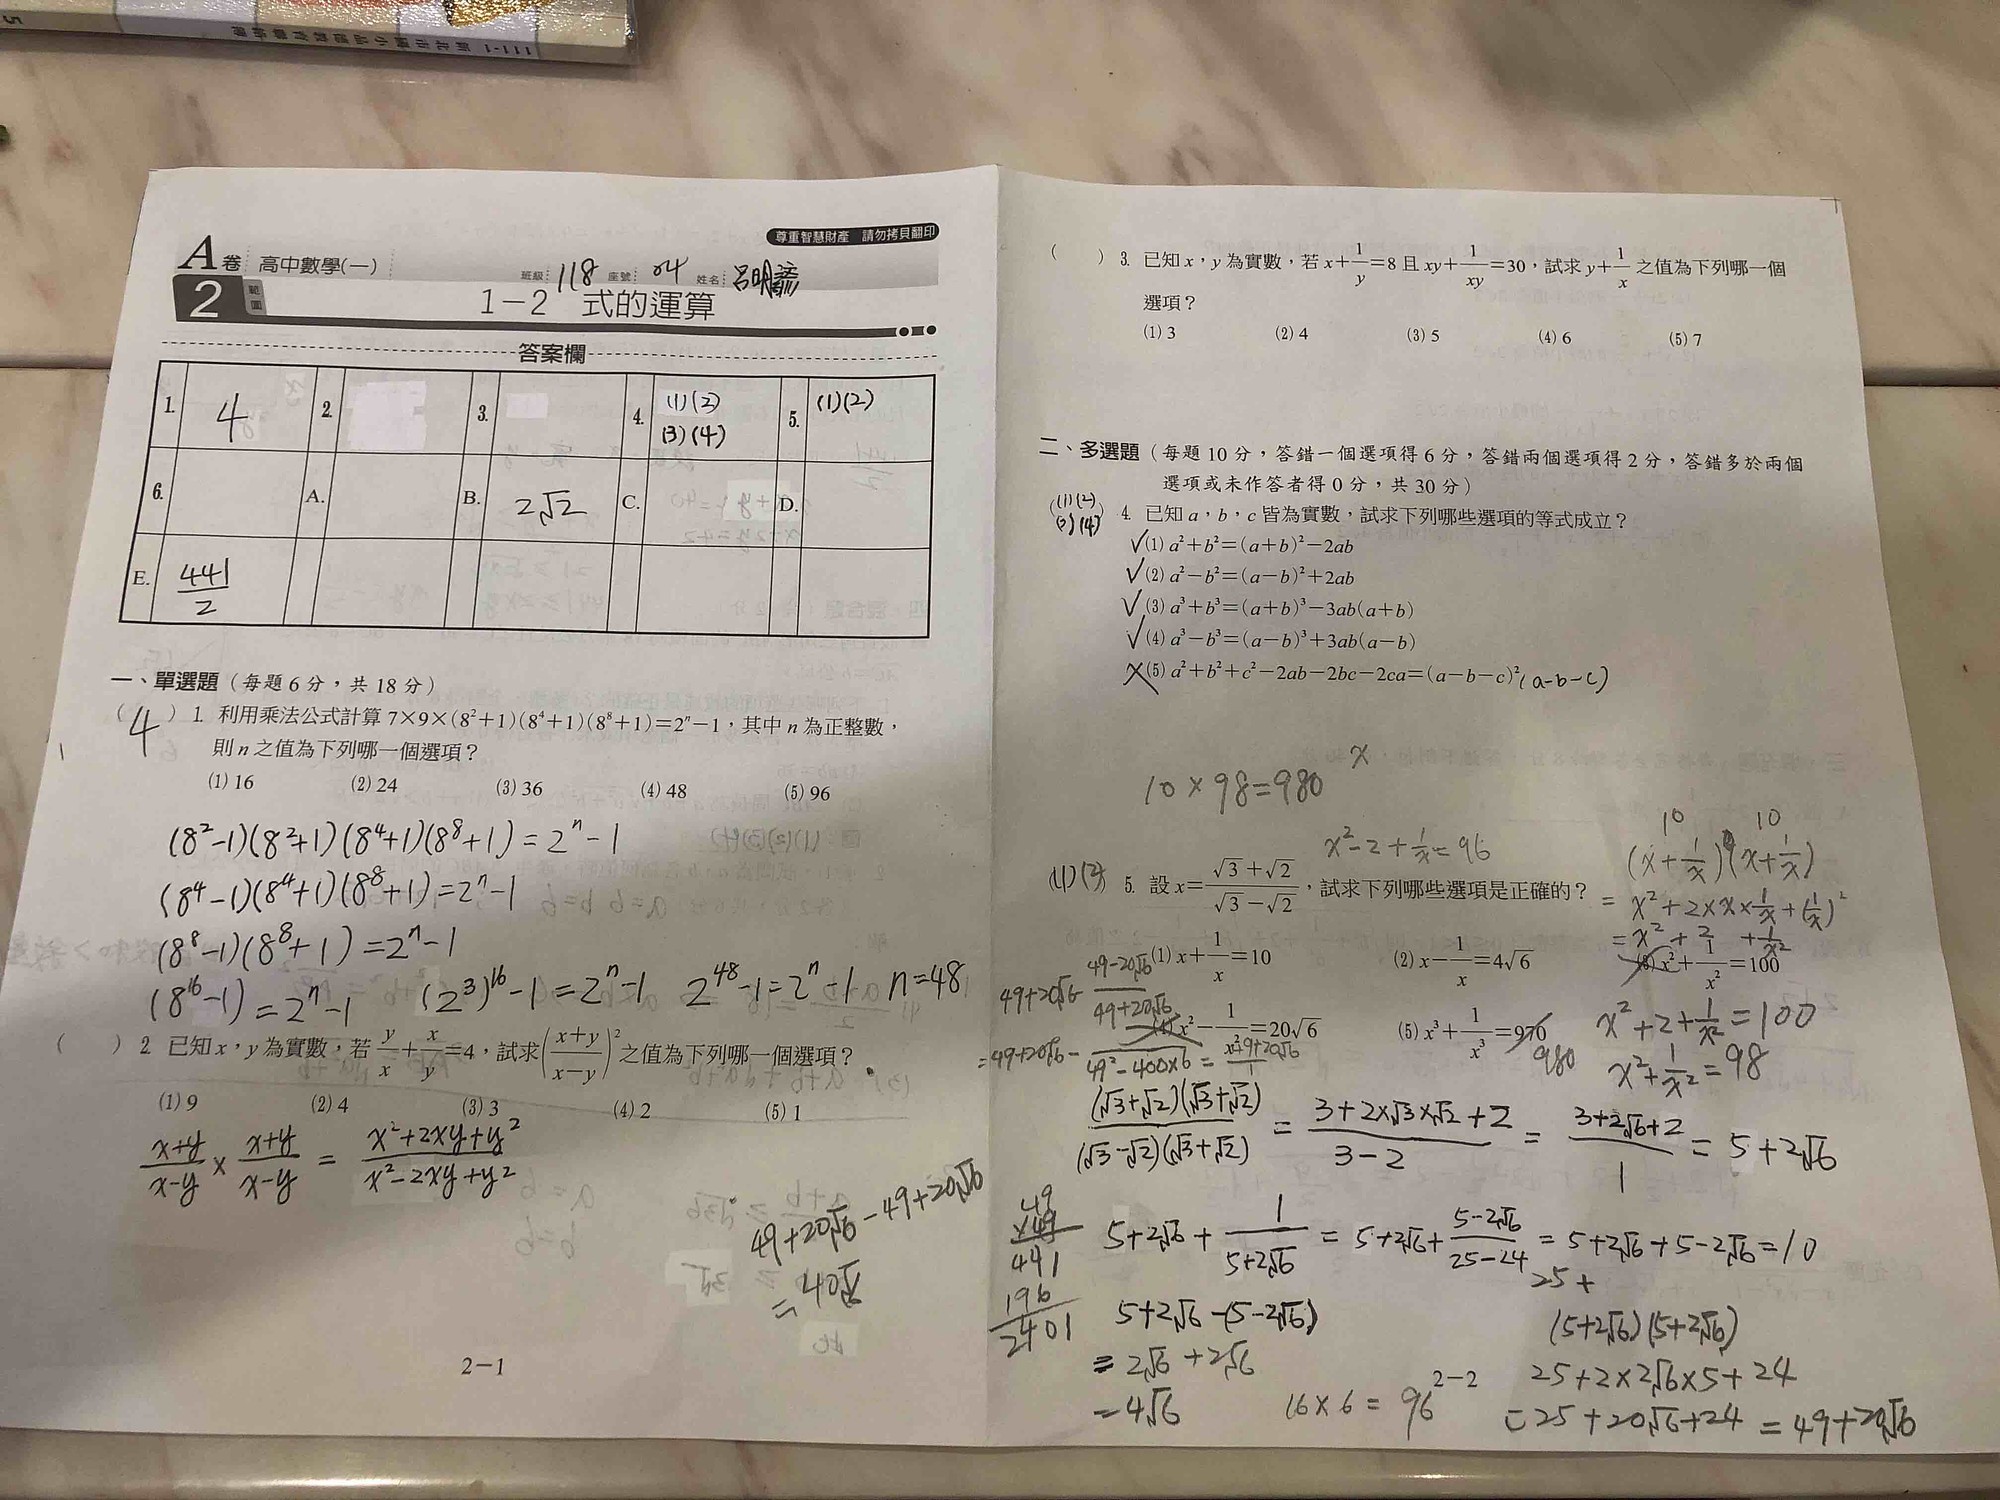 111-1 新北市國小品德教育
5
A卷 高中數學(一)
尊重智慧財產 請勿拷貝翻印
班級: 118 座號: 04 姓名:
2 範圍 1-2 式的運算
答案欄
1. 4 2. 3. 4. (1)(2) (3)(4) 5. (1)(2)
6. A. B. 2√2 C. D.
E. 441/2
一、單選題(每題6分,共18分)
( 4 ) 1. 利用乘法公式計算 7×9×(8²+1)(8⁴+1)(8⁸+1)=2ⁿ-1,其中 n 為正整數,
則 n 之值為下列哪一個選項?
(1) 16 (2) 24 (3) 36 (4) 48 (5) 96
(8²-1)(8²+1)(8⁴+1)(8⁸+1)=2ⁿ-1
(8⁴-1)(8⁴+1)(8⁸+1)=2ⁿ-1
(8⁸-1)(8⁸+1)=2ⁿ-1
(8¹⁶-1)=2ⁿ-1 (2³)¹⁶-1=2ⁿ-1 2⁴⁸-1=2ⁿ-1 n=48
( ) 2. 已知 x,y 為實數,若 y/x+x/y=4,試求((x+y)/(x-y))²之值為下列哪一個選項?
(1) 9 (2) 4 (3) 3 (4) 2 (5) 1
(x+y)/(x-y) × (x+y)/(x-y) = (x²+2xy+y²)/(x²-2xy+y²)
49+20√6-49+20√6
=40√6
2-1
( ) 3. 已知 x,y 為實數,若 x+1/y=8 且 xy+1/xy=30,試求 y+1/x 之值為下列哪一個
選項?
(1) 3 (2) 4 (3) 5 (4) 6 (5) 7
二、多選題(每題10分,答錯一個選項得6分,答錯兩個選項得2分,答錯多於兩個
選項或未作答者得0分,共30分)
((1)(2)(3)(4)) 4. 已知 a,b,c 皆為實數,試求下列哪些選項的等式成立?
✓(1) a²+b²=(a+b)²-2ab
✓(2) a²-b²=(a-b)²+2ab
✓(3) a³+b³=(a+b)³-3ab(a+b)
✓(4) a³-b³=(a-b)³+3ab(a-b)
✗(5) a²+b²+c²-2ab-2bc-2ca=(a-b-c)² (a-b-c)
x
10×98=980
x²-2+1/x=96
10 10
(x+1/x)(x+1/x)
=x²+2×x×1/x+(1/x)²
=x²+2+1/x²
x²+2+1/x²=100
x²+1/x²=98
(1)(2) 5. 設 x=(√3+√2)/(√3-√2),試求下列哪些選項是正確的?
(1) x+1/x=10 (2) x-1/x=4√6 (3) x²+1/x²=100
(4) x²-1/x²=20√6 (5) x³+1/x³=970
980
49+20√6- (49-20√6)/(49+20√6)
=49+20√6-
49²-400×6
(√3+√2)(√3+√2)/(√3-√2)(√3+√2) = (3+2×√3×√2+2)/(3-2) = (3+2√6+2)/1 = 5+2√6
49
×49
441
196
2401
5+2√6+1/(5+2√6) = 5+2√6+(5-2√6)/(25-24) = 5+2√6+5-2√6=10
25+
5+2√6-(5-2√6)
=2√6+2√6
=4√6
16×6=96
(5+2√6)(5+2√6)
25+2×2√6×5+24
=25+20√6+24=49+20√6
2-2